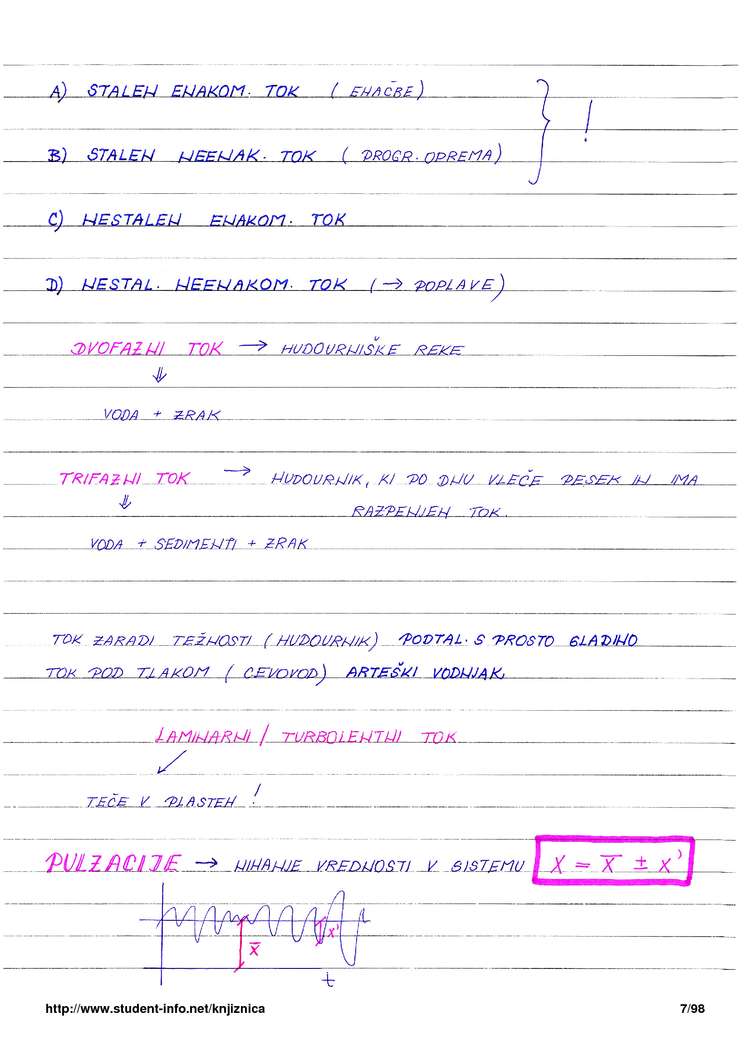 A) STALEN ENAKOM. TOK ( ENAČBE )
!
B) STALEN NEENAK. TOK ( PROGR. OPREMA )
C) NESTALEN ENAKOM. TOK
D) NESTAL. NEENAKOM. TOK ( → POPLAVE )
DVOFAZNI TOK → HUDOURNIŠKE REKE
⇓
VODA + ZRAK
TRIFAZNI TOK → HUDOURNIK, KI PO DNU VLEČE PESEK IN IMA
RAZPENJEN TOK.
⇓
VODA + SEDIMENTI + ZRAK
TOK ZARADI TEŽNOSTI ( HUDOURNIK ) PODTAL. S PROSTO GLADINO
TOK POD TLAKOM ( CEVOVOD ) ARTEŠKI VODNJAK
LAMINARNI / TURBOLENTNI TOK
TEČE V PLASTEH !
PULZACIJE → NIHANJE VREDNOSTI V SISTEMU X = X̅ ± X'
X'
X̅
t
http://www.student-info.net/knjiznica 7/98